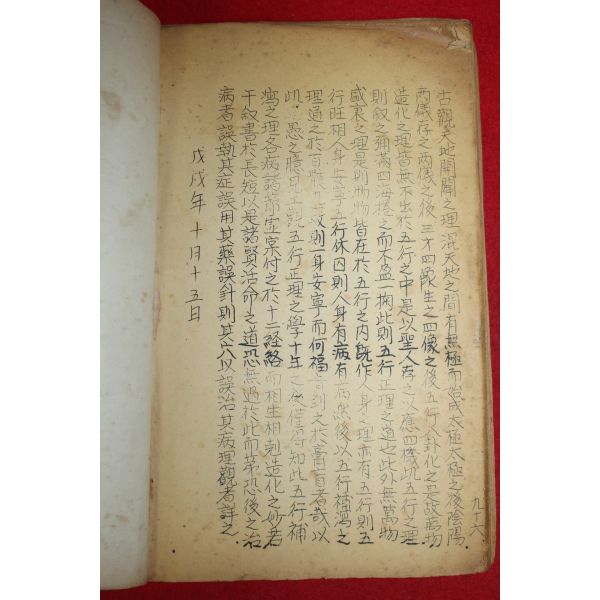 古觀天地開闢之理混天地之間有無極而始成太極太極之後陰陽
兩儀存之兩儀之後三才四象生之四像之後五行八卦化之是政萬物
造化之理皆無不出於五行之中是以聖人存之以應四機此五行之理
則叙之彌滿四海捲之而不盈一掬此則五行正理之道之此外無萬物
盛衰之理是則萬物皆在於五行之內旣作人身之理亦有五行則五
行旺相人身安寧五行休囚則人身有病有病然後以五行補瀉之
理道之於百骸 則一身安寧而何福 到之於膏肓者哉以
此愚之臆見 五行正理之學十年之 僅得知此五行補
瀉之理各病 虛實付之於十二経絡而相生相剋造化之妙若
干叙書於長短以是諸賢活命之道恐無過於此而第恐後之治
病者誤執其症誤用其藥誤針則其穴以誤治其病理觀者詳之
戊戌年十月十五日
九十六